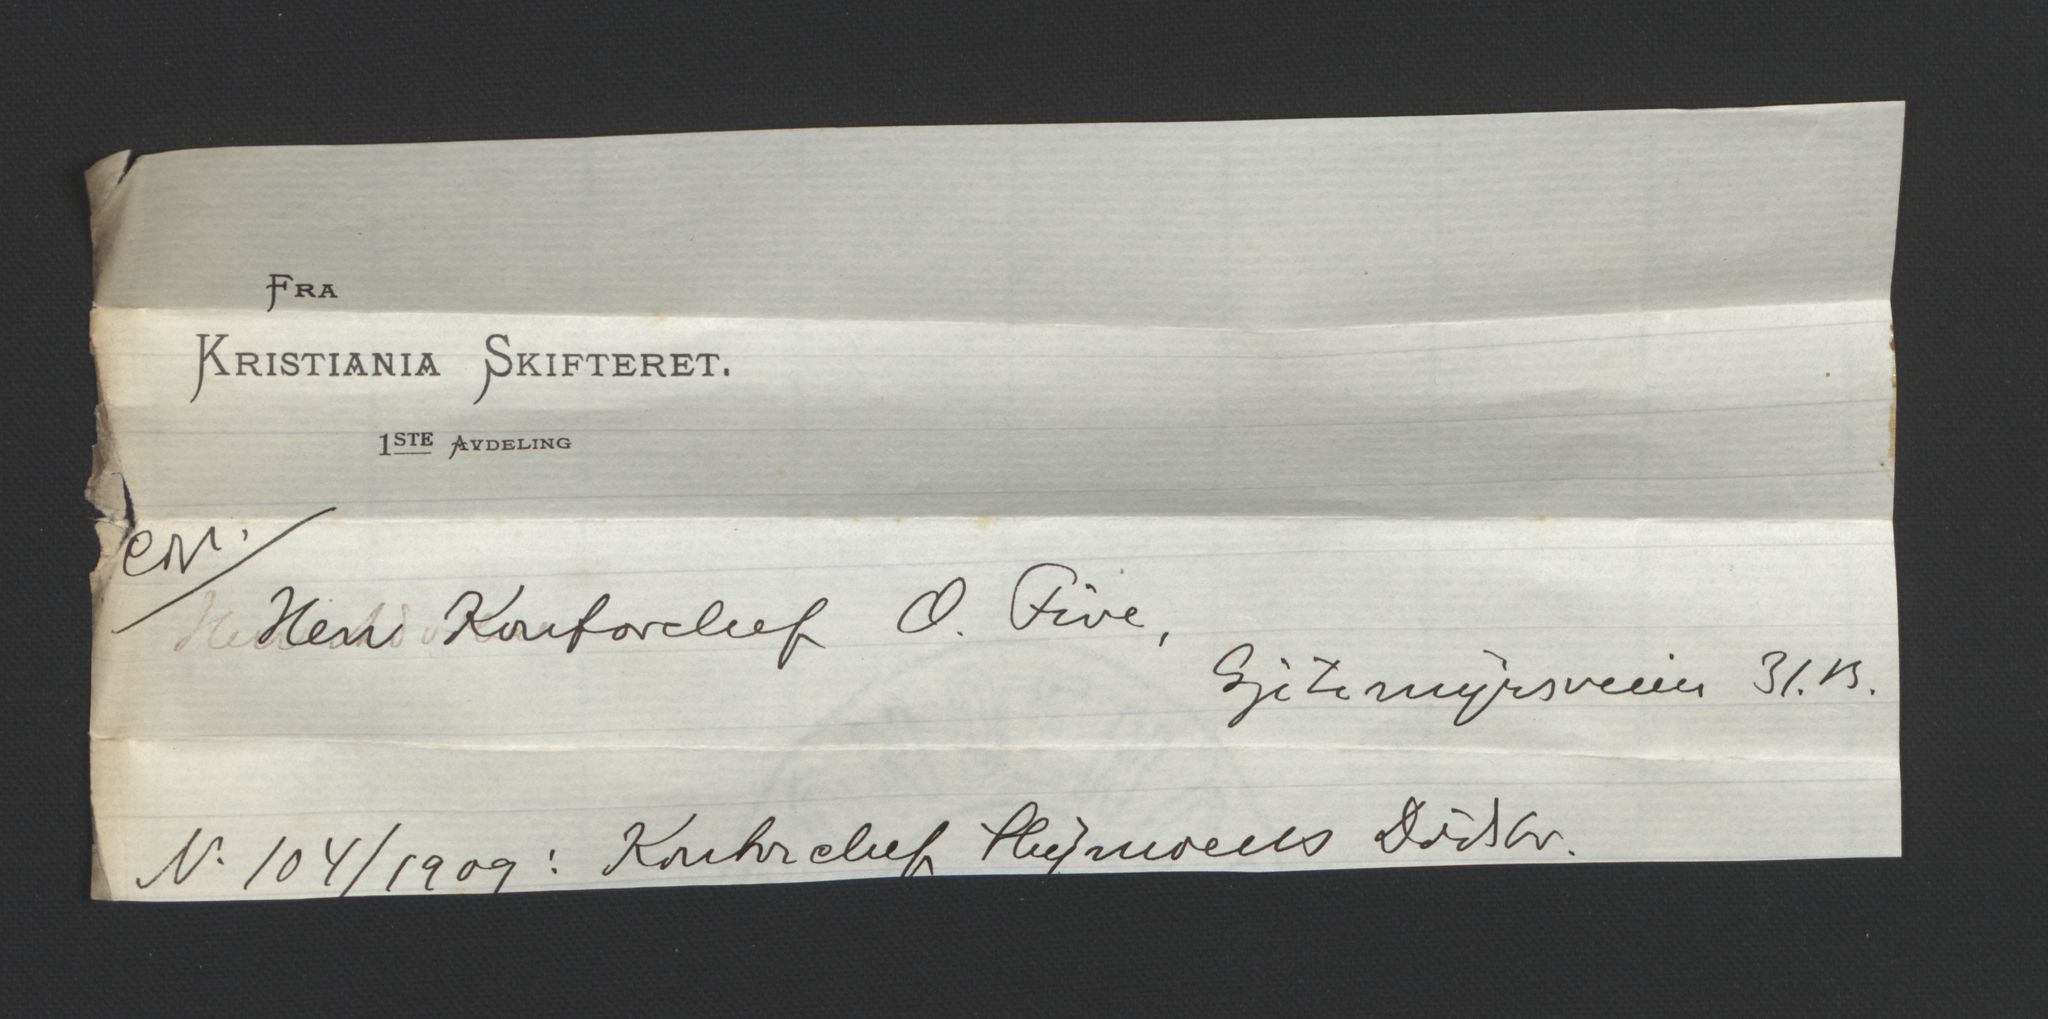 FRA
KRISTIANIA SKIFTERET.
1STE AVDELING
Herr Kontorchef O. Five,
Gjetemyrsveien 31. B.
N. 104/1909: Kontorchef Dødsbo.